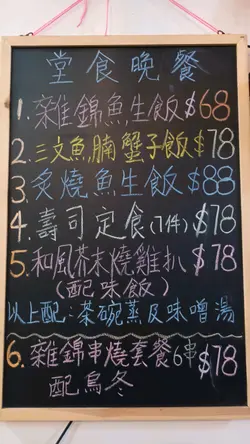 堂食晚餐
1. 雜錦魚生飯 $68
2. 三文魚腩蟹子飯 $78
3. 炙燒魚生飯 $88
4. 壽司定食(7件) $78
5. 和風芥末燒雞扒 $78
(配味飯)
以上配:茶碗蒸及味噌湯
6. 雜錦串燒套餐6串 $78
配烏冬